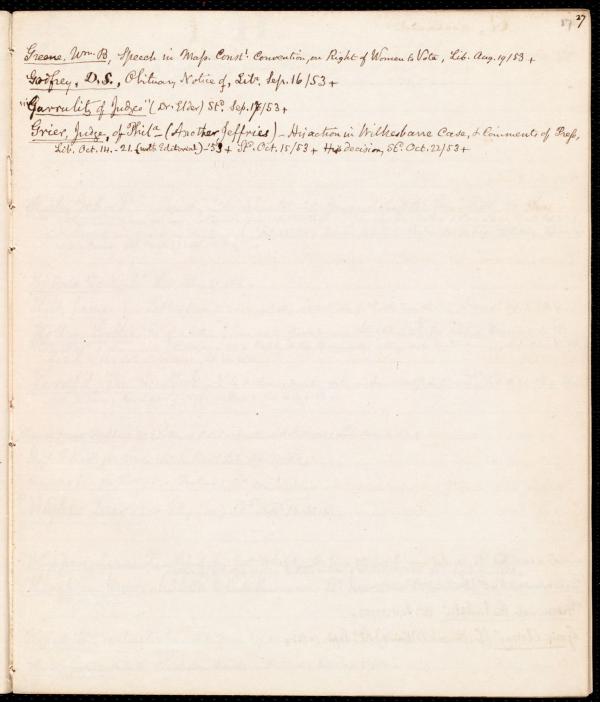 27 27
Greene, Wm. B., Speech in Mass. Const'l. Convention, on Right of Women to Vote, Lib. Aug. 19/53 +
Godfrey, D.S., Obituary Notice of, Lib. Sep. 16/53 +
"Garrulity of Judges" (Dr. Elder) Sd. Sep. 17/53 +
Grier, Judge, of Phila. (Another Jeffries) – His action in Wilkesbarre Case, & Comments of Press,
Lib. Oct. 14. - 21. (with Editorial) - 53 + Sd. Oct. 15/53 + His decision, Sd. Oct. 22/53 +